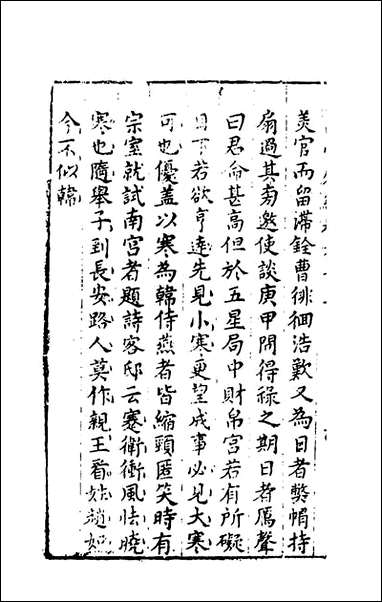 美官而留滯銓曹徘徊浩歎又為日者獘帽持
扇過其旁邀使談庚甲問得祿之期日者厲聲
曰君命甚高但於五星局中財帛宮若有所礙
目下若欲亨達先見小寒更望成事必見大寒
可也優蓋以寒為韓侍燕者皆縮頸匿笑時有
宗室就試南宮者題詩客邸云蹇衛衝風怯曉
寒也隨舉子到長安路人莫作親王看姓趙如
今不似韓